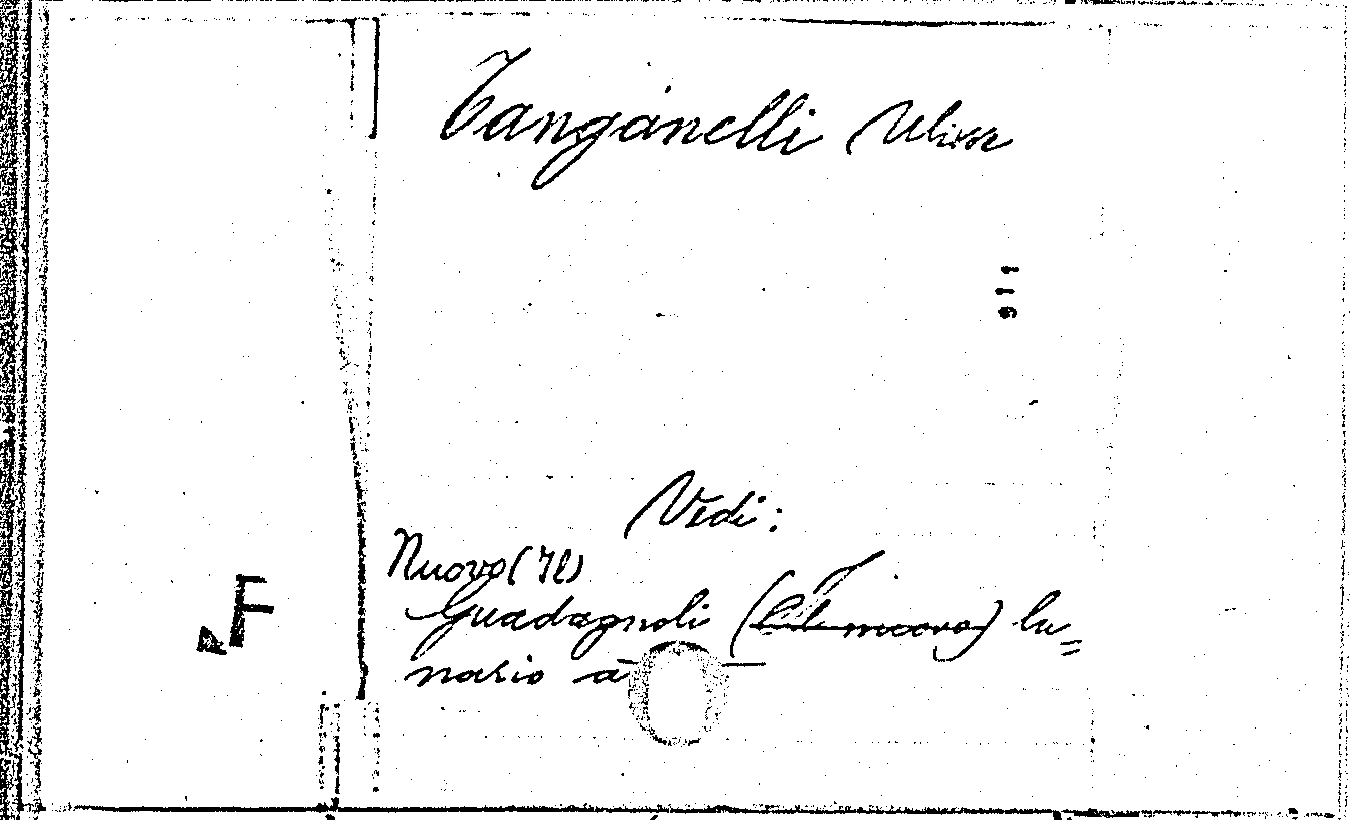 Tanganelli Ulisse
911
Vedi:
Nuovo (Il)
Guadagnoli (Il nuovo) lu=
nario a
F